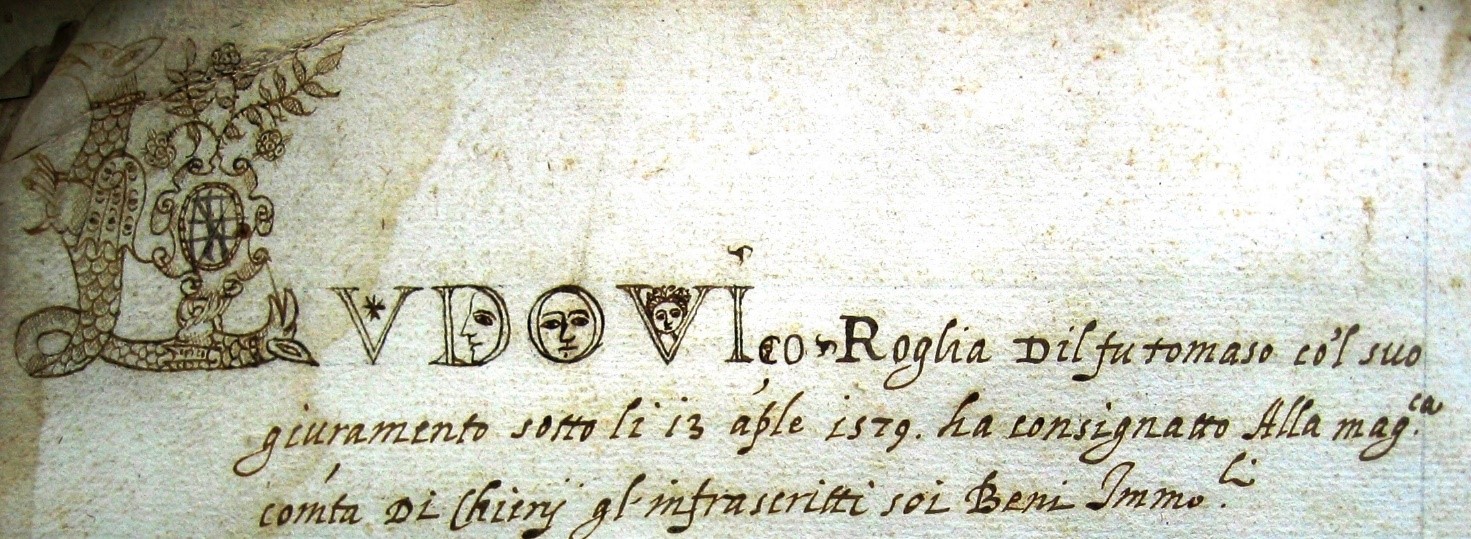 LVDOVIco Roglia Dil fu tomaso co'l suo
giuramento sotto li 13 aple 1579. ha consignatto Alla mag.ca
comta Di Chierij gl' infrascritti soi Beni Immo.li